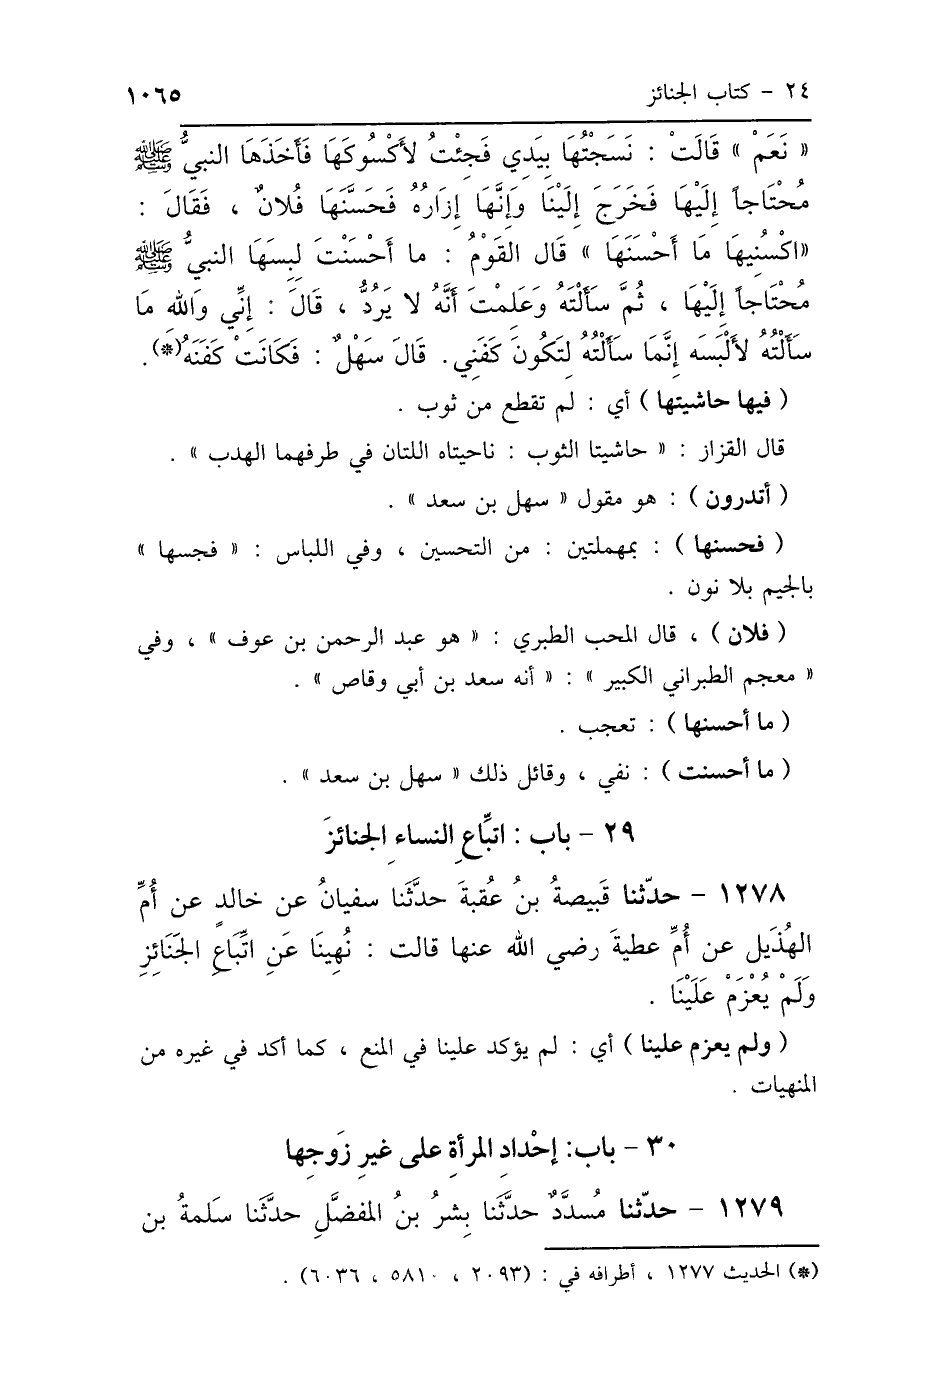 ٢٤ - كتاب الجنائز ١٠٦٥
« نَعَمْ » قَالَتْ : نَسَجْتُهَا بِيَدِي فَجِئْتُ لأَكْسُوكَهَا فَأَخَذَهَا النبيُّ ﷺ
مُحْتَاجاً إِلَيْهَا فَخَرَجَ إِلَيْنَا وَإِنَّهَا إِزَارُهُ فَحَسَّنَهَا فُلانٌ ، فَقَالَ :
«اكْسُنِيهَا مَا أَحْسَنَهَا » قَال القَوْمُ : ما أَحْسَنْتَ لَبِسَهَا النبيُّ ﷺ
مُحْتَاجاً إِلَيْهَا ، ثُمَّ سَأَلْتَهُ وَعَلِمْتَ أَنَّهُ لا يَرُدُّ ، قَالَ : إِنِّي وَاللهِ مَا
سَأَلْتُهُ لأَلْبَسَه إِنَّمَا سَأَلْتُهُ لِتَكُونَ كَفَنِي. قَالَ سَهْلٌ : فَكَانَتْ كَفَنَهُ(*).
( فيها حاشيتها ) أي : لم تقطع من ثوب .
قال القزاز : « حاشيتا الثوب : ناحيتاه اللتان في طرفهما الهدب » .
( أتدرون ) : هو مقول « سهل بن سعد » .
( فحسنها ) : بمهملتين : من التحسين ، وفي اللباس : « فجسها »
بالجيم بلا نون .
( فلان ) ، قال المحب الطبري : « هو عبد الرحمن بن عوف » ، وفي
« معجم الطبراني الكبير » : « أنه سعد بن أبي وقاص » .
( ما أحسنها ) : تعجب .
( ما أحسنت ) : نفي ، وقائل ذلك « سهل بن سعد » .
٢٩ - باب : اتبِّاعِ النساءِ الجنائزَ
١٢٧٨ - حدّثنا قَبيصةُ بنُ عُقبةَ حدَّثَنا سفيانُ عن خالدٍ عن أُمِّ
الهُذَيل عن أُمِّ عطيةَ رضي الله عنها قالت : نُهِينَا عَنِ اتِّبَاعِ الجَنَائِزِ
وَلَمْ يُعْزَمْ عَلَيْنَا .
( ولم يعزم علينا ) أي : لم يؤكد علينا في المنع ، كما أكد في غيره من
المنهيات .
٣٠ - باب: إحْدادِ المرأةِ على غيرِ زَوجِها
١٢٧٩ - حدّثنا مُسدَّدٌ حدَّثَنا بِشرُ بنُ المفضَّلِ حدَّثَنا سَلمةُ بن
(*) الحديث ١٢٧٧ ، أطرافه في : (٢٠٩٣ ، ٥٨١٠ ، ٦٠٣٦) .